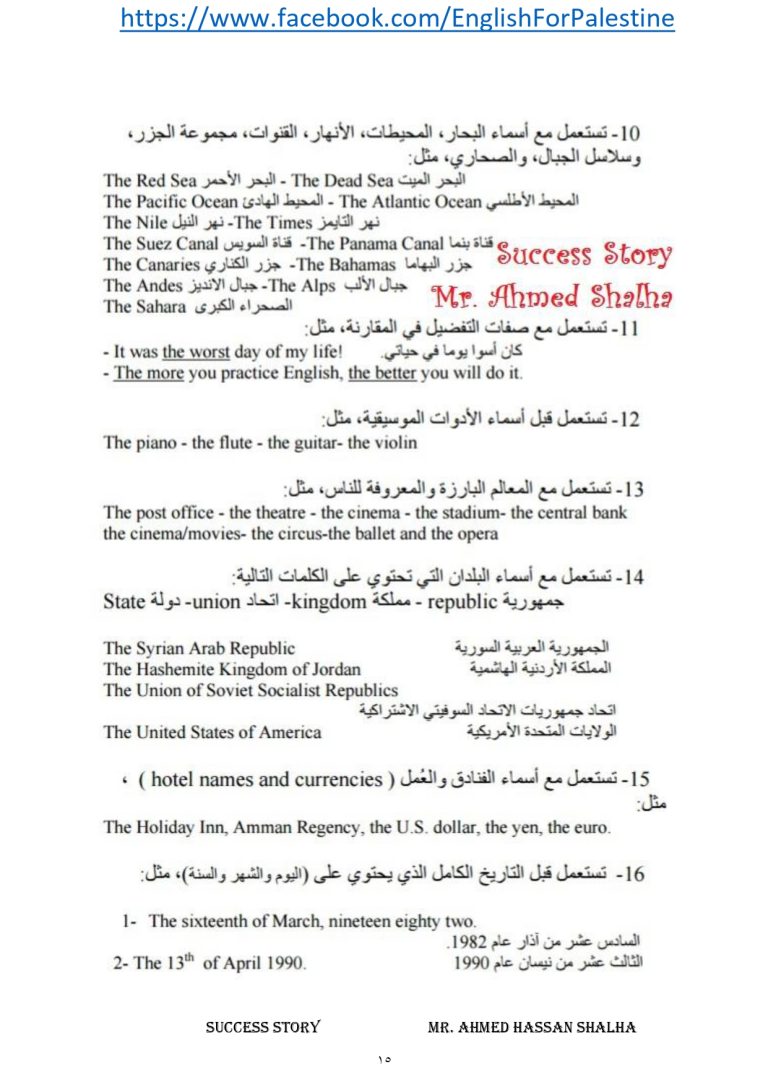 https://www.facebook.com/EnglishForPalestine
10- تستعمل مع أسماء البحار، المحيطات، الأنهار، القنوات، مجموعة الجزر،
وسلاسل الجبال، والصحاري، مثل:
The Red Sea البحر الأحمر - The Dead Sea البحر الميت
The Pacific Ocean المحيط الهادئ - The Atlantic Ocean المحيط الأطلسي
The Nile نهر النيل -The Times نهر التايمز
The Suez Canal قناة السويس -The Panama Canal قناة بنما
The Canaries جزر الكناري -The Bahamas جزر البهاما
The Andes جبال الانديز -The Alps جبال الألب
The Sahara الصحراء الكبرى
Success Story
Mr. Ahmed Shalha
11- تستعمل مع صفات التفضيل في المقارنة، مثل:
- It was the worst day of my life! كان أسوا يوما في حياتي.
- The more you practice English, the better you will do it.
12- تستعمل قبل أسماء الأدوات الموسيقية، مثل:
The piano - the flute - the guitar- the violin
13- تستعمل مع المعالم البارزة والمعروفة للناس، مثل:
The post office - the theatre - the cinema - the stadium- the central bank
the cinema/movies- the circus-the ballet and the opera
14- تستعمل مع أسماء البلدان التي تحتوي على الكلمات التالية:
State دولة -union اتحاد -kingdom مملكة - republic جمهورية
The Syrian Arab Republic الجمهورية العربية السورية
The Hashemite Kingdom of Jordan المملكة الأردنية الهاشمية
The Union of Soviet Socialist Republics
اتحاد جمهوريات الاتحاد السوفيتي الاشتراكية
The United States of America الولايات المتحدة الأمريكية
15- تستعمل مع أسماء الفنادق والعُمل ( hotel names and currencies ) ،
مثل:
The Holiday Inn, Amman Regency, the U.S. dollar, the yen, the euro.
16- تستعمل قبل التاريخ الكامل الذي يحتوي على (اليوم والشهر والسنة)، مثل:
1- The sixteenth of March, nineteen eighty two.
السادس عشر من آذار عام 1982.
2- The 13th of April 1990. الثالث عشر من نيسان عام 1990
SUCCESS STORY MR. AHMED HASSAN SHALHA
١٥